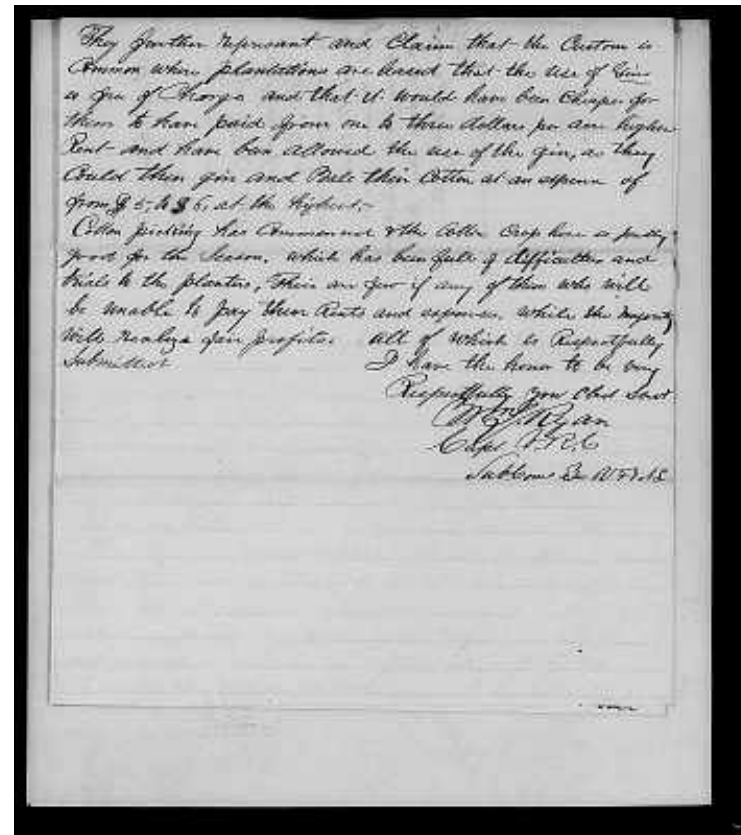 They further represant and Claim that the Custom is
Common where plantations are leased that the use of Gins
is free of Charge and that it would have been cheaper for
them to have paid from one to three dollars per acre higher
Rent and have been allowed the use of the gin, as they
Could then gin and Bale their Cotton at an expense of
from $5, to $6, at the highest,-
Cotton picking has Commenced & the Cotton Crop here is pretty
good for the Season, which has been full of difficulties and
trials to the planters, There are few if any of them who will
be unable to pay their Rents and expenses, while the majority
will realize fair profits. all of which is Respectfully
Submitted
I have the honor to be very
Respectfully your Obed Servt
Wm J. Ryan
Capt V.R.C
Sub Com